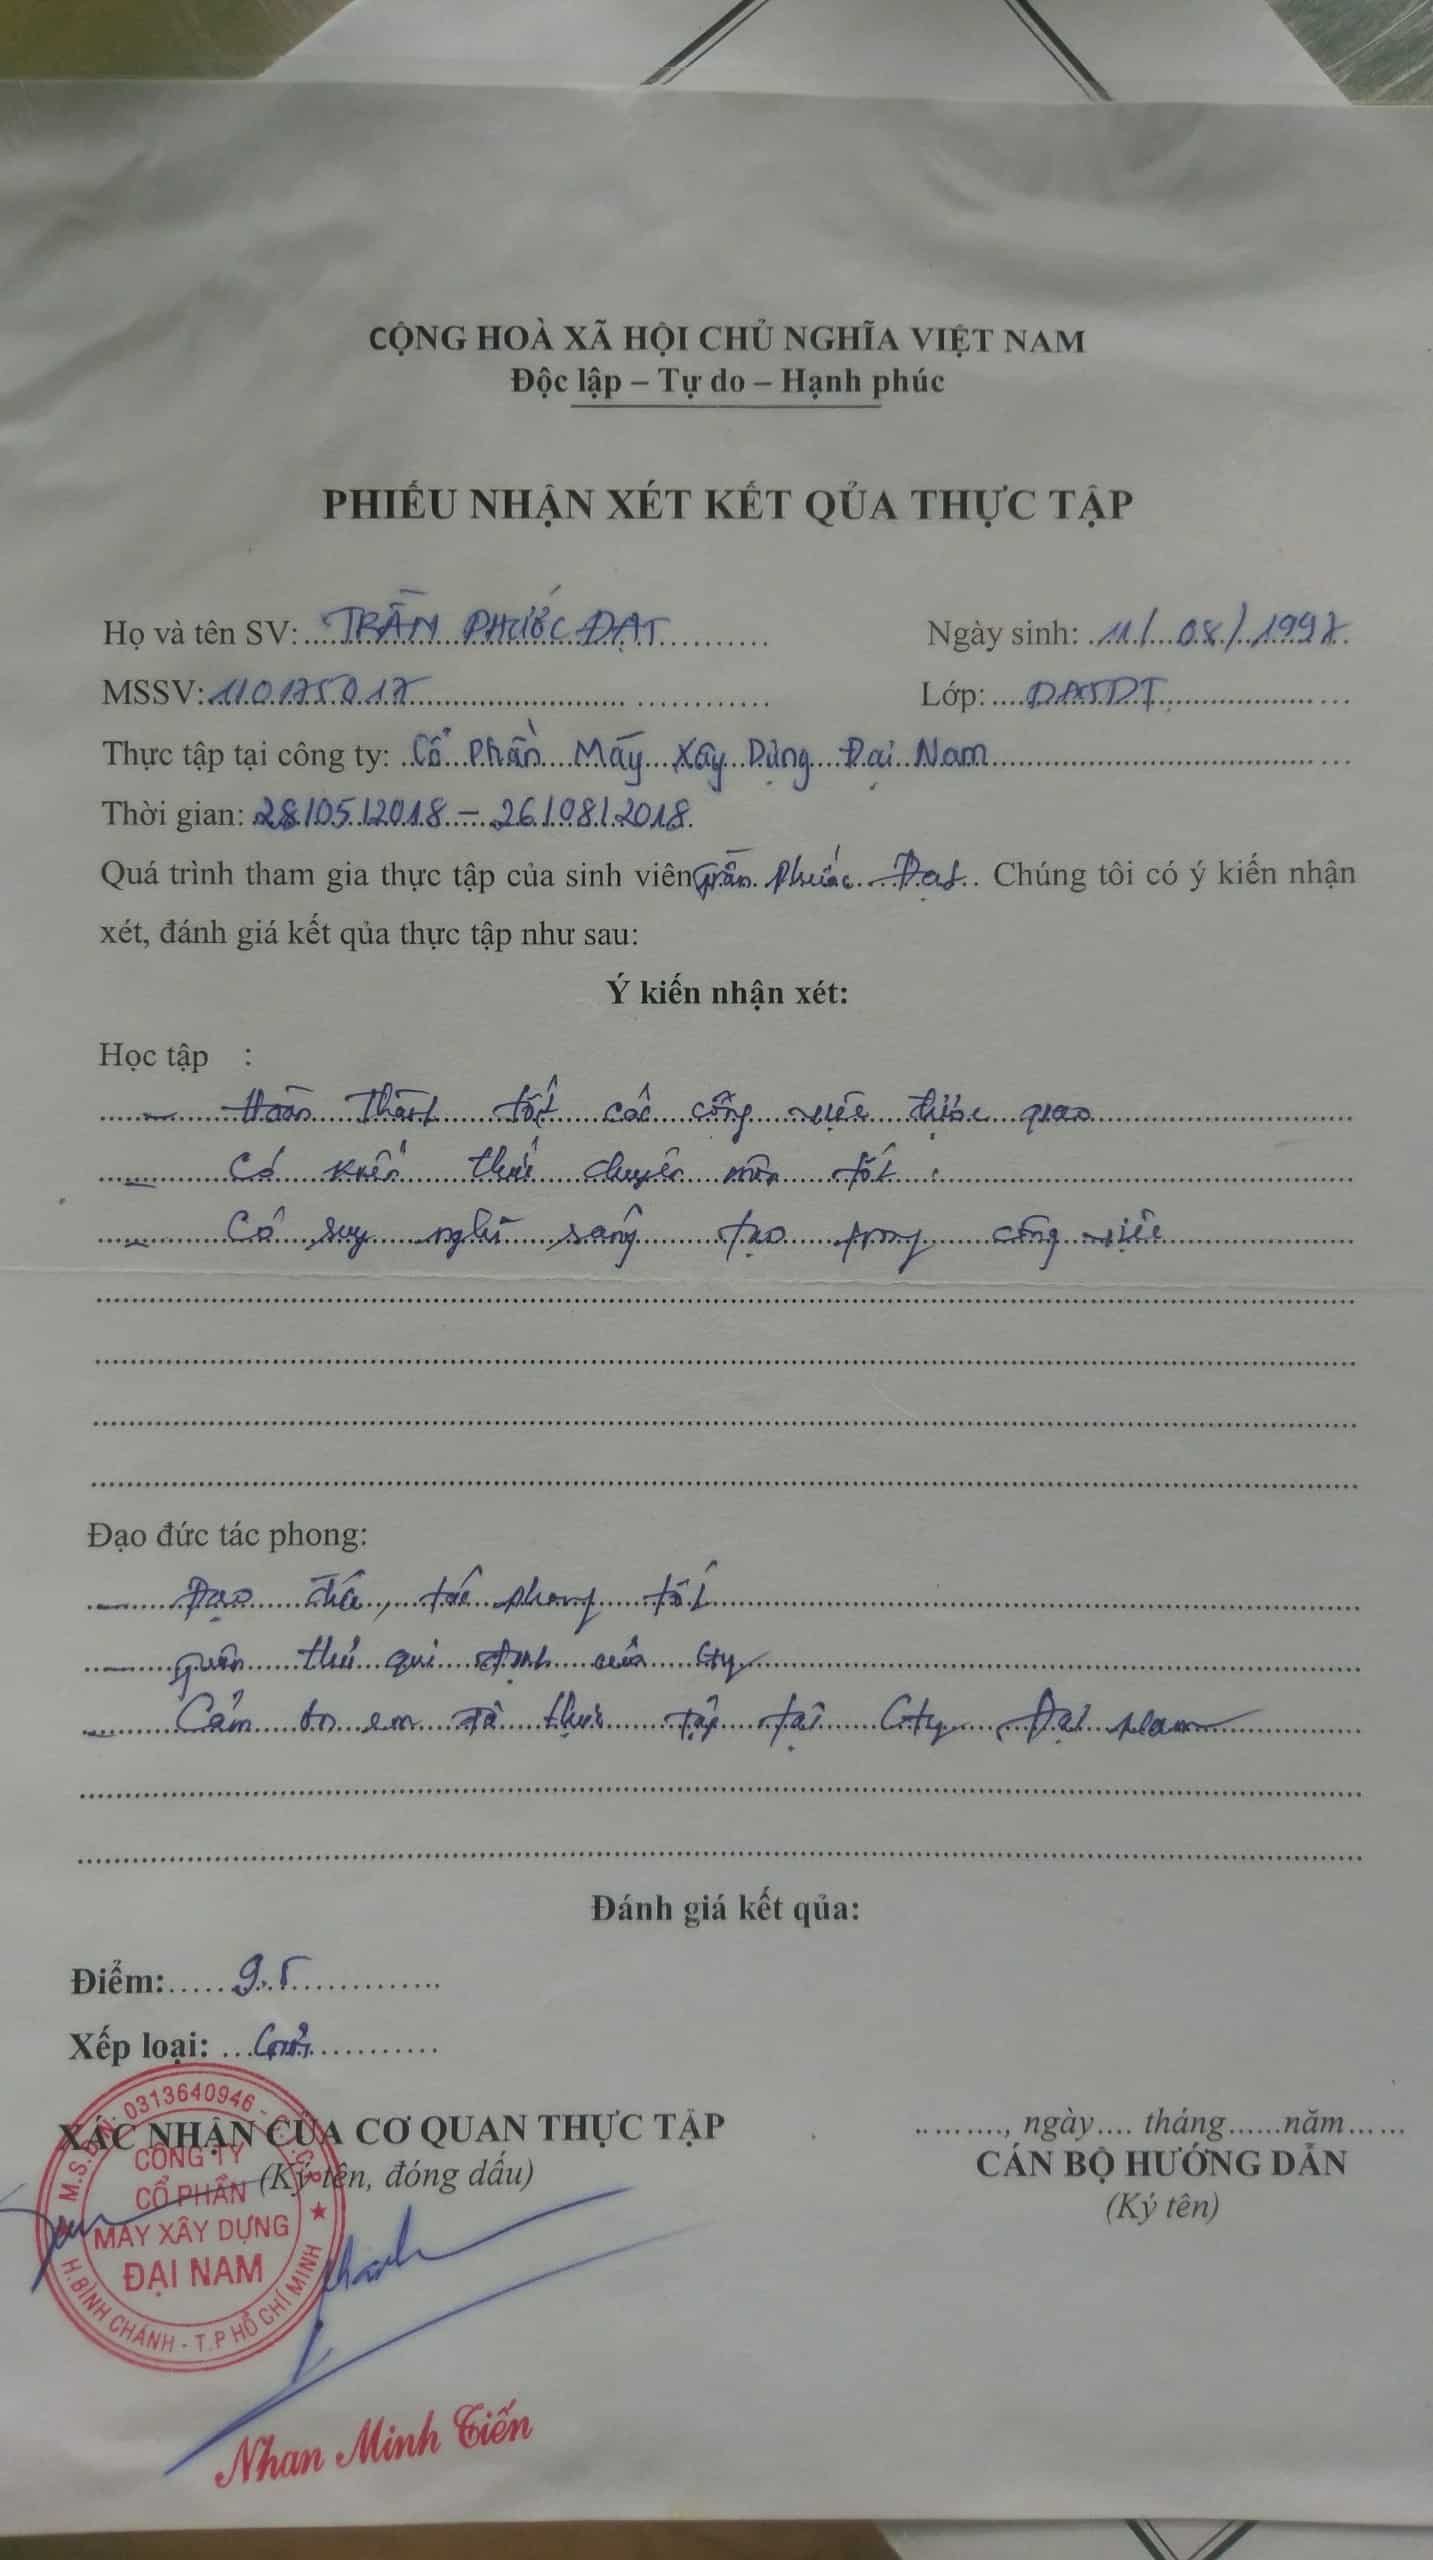 CỘNG HOÀ XÃ HỘI CHỦ NGHĨA VIỆT NAM
Độc lập – Tự do – Hạnh phúc
PHIẾU NHẬN XÉT KẾT QỦA THỰC TẬP
Họ và tên SV: TRẦN PHƯỚC ĐẠT Ngày sinh: 11/08/1997
MSSV: 110175017 Lớp: DA15DT
Thực tập tại công ty: Cổ Phần Máy Xây Dựng Đại Nam
Thời gian: 28/05/2018 – 26/08/2018
Quá trình tham gia thực tập của sinh viên Trần Phước Đạt. Chúng tôi có ý kiến nhận
xét, đánh giá kết qủa thực tập như sau:
Ý kiến nhận xét:
Học tập :
– Hoàn Thành tốt các công việc được giao
– Có kiến thức chuyên môn tốt.
– Có suy nghĩ sáng tạo trong công việc
Đạo đức tác phong:
– Đạo đức, tác phong tốt
– Tuân thủ qui định của Cty
– Cám ơn em đã thực tập tại Cty Đại Nam
Đánh giá kết qủa:
Điểm: 9.5
Xếp loại: Giỏi
XÁC NHẬN CỦA CƠ QUAN THỰC TẬP
(Ký tên, đóng dấu)
........., ngày.... tháng......năm......
CÁN BỘ HƯỚNG DẪN
(Ký tên)
M.S.D.N: 0313640946 - C.T.C.P
CÔNG TY
CỔ PHẦN
MÁY XÂY DỰNG
ĐẠI NAM
H.BÌNH CHÁNH - T.P HỒ CHÍ MINH
Nhan Minh Tiến